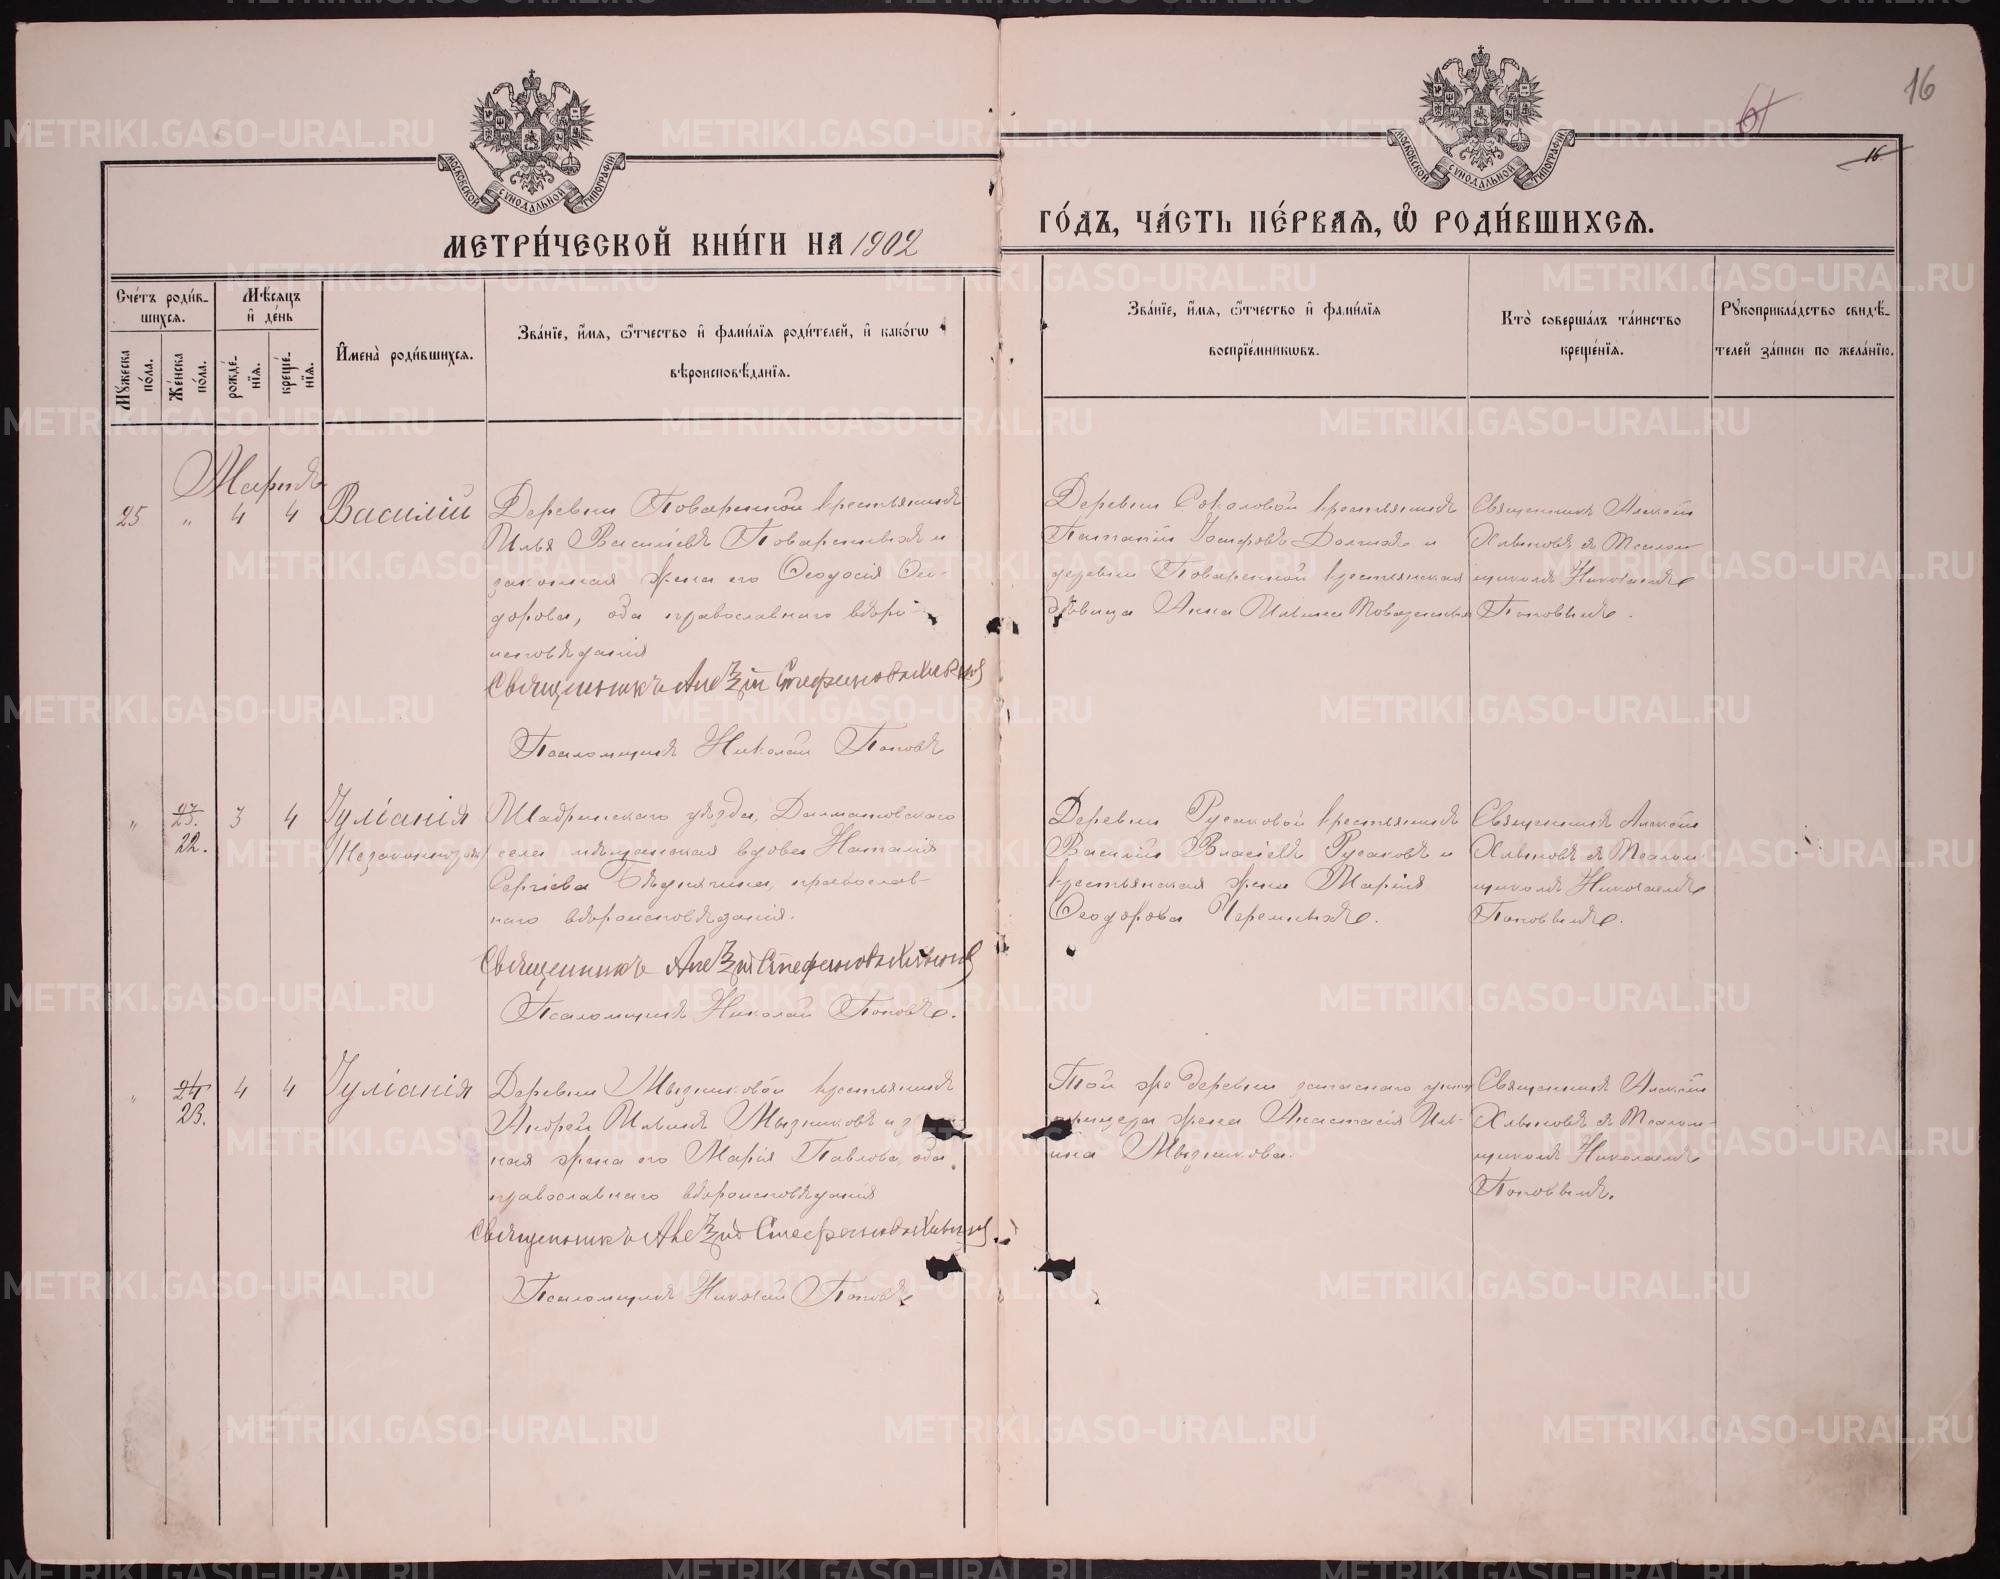 16
16
МОСКОВСКОЙ СѴНОДАЛЬНОЙ ТИПОГРАФІИ
МОСКОВСКОЙ СѴНОДАЛЬНОЙ ТИПОГРАФІИ
МЕТРИ́ЧЕСКОЙ КНИ́ГИ НА 1902
ГО́ДЪ, ЧА́СТЬ ПЕ́РВАѦ, Ѽ РОДИ́ВШИХСѦ.
Сче́тъ роди́в-
шихсѧ.
Мꙋ́жеска
по́ла.
Же́нска
по́ла.
Мѣ́сѧцъ
и҆ де́нь
рожде́-
нїѧ.
креще́-
нїѧ.
И҆мена̀ роди́вшихсѧ.
Зва́нїе, и҆́мѧ, ѻ҆́тчество и҆ фами́лїѧ роди́телей, и҆ како́гѡ
вѣроисповѣ́данїѧ.
Зва́нїе, и҆́мѧ, ѻ҆́тчество и҆ фами́лїѧ
воспрїе́мникѡвъ.
Кто̀ соверша́лъ та́инство
креще́нїѧ.
Рꙋкоприкла́дство свидѣ́-
телей за́писи по жела́нїю.
Мартъ
25 " 4 4 Василій
Деревни Поваренной крестьянинъ
Илья Васильевъ Поваренныхъ и
законная жена его Ѳеодосія Ѳео-
дорова, оба православнаго вѣро-
исповѣданія
Священникъ Алексій Стефановъ Хлыновъ
Псаломщикъ Николай Поповъ
Деревни Соколовой крестьянинъ
Іосифовъ Долгихъ и
деревни Поваренной крестьянская
дѣвица Анна Ильина Поваренныхъ
Священникъ Алексій
Хлыновъ съ Псалом-
щикомъ Николаемъ
Поповымъ.
" 23. 22. 3 4 Іуліанія
/Незаконнорожд/
Шадринскаго уѣзда, Далматовскаго
села мѣщанская вдова Наталія
Сергіева Бѣднягина, православ-
наго вѣроисповѣданія.
Священникъ Алексій Стефановъ Хлыновъ
Псаломщикъ Николай Поповъ.
Деревни Русаковой крестьянинъ
Василій Власіевъ Русаковъ и
крестьянская жена Марія
Ѳеодорова Черемныхъ.
Священникъ Алексій
Хлыновъ съ Псалом-
щикомъ Николаемъ
Поповымъ.
" 24 23. 4 4 Іуліанія
Деревни Мызниковой крестьянинъ
Андрей Ильинъ Мызниковъ и
ная жена его Марія Павлова, оба
православнаго вѣроисповѣданія
Священникъ Алексій Стефановъ Хлыновъ
Псаломщикъ Николай Поповъ
Той же деревни запаснаго унтеръ
офицера жена Анастасія Иль-
ина Мызникова.
Священникъ Алексій
Хлыновъ съ Псалом-
щикомъ Николаемъ
Поповымъ.
METRIKI.GASO-URAL.RU